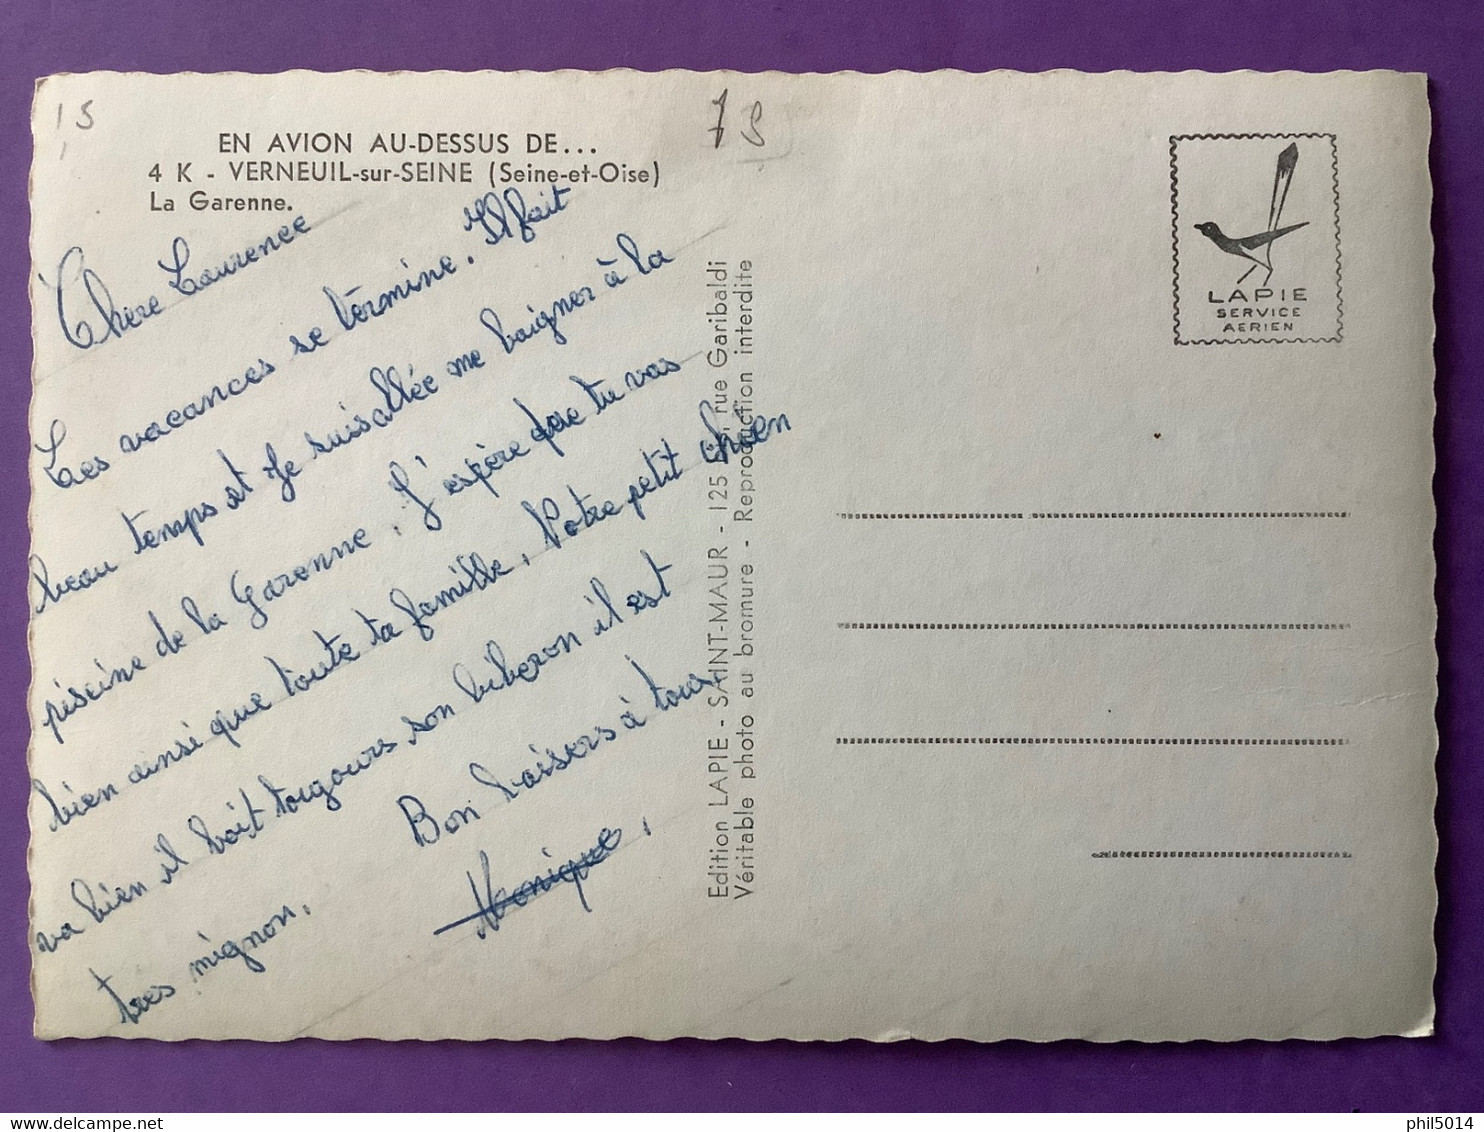 15
78
EN AVION AU-DESSUS DE...
4 K - VERNEUIL-sur-SEINE (Seine-et-Oise)
La Garenne.
Chère Laurence
Les vacances se termine. Il fait
beau temps et je suis allée me baigner à la
piscine de la Garenne. J'espère que tu vas
bien ainsi que toute ta famille. Notre petit chien
va bien il boit toujours son biberon il est
très mignon.
Bon baisers à tous,
Monique.
Edition LAPIE - SAINT-MAUR - 125 rue Garibaldi
Véritable photo au bromure - Reproduction interdite
LAPIE
SERVICE
AERIEN
phil5014